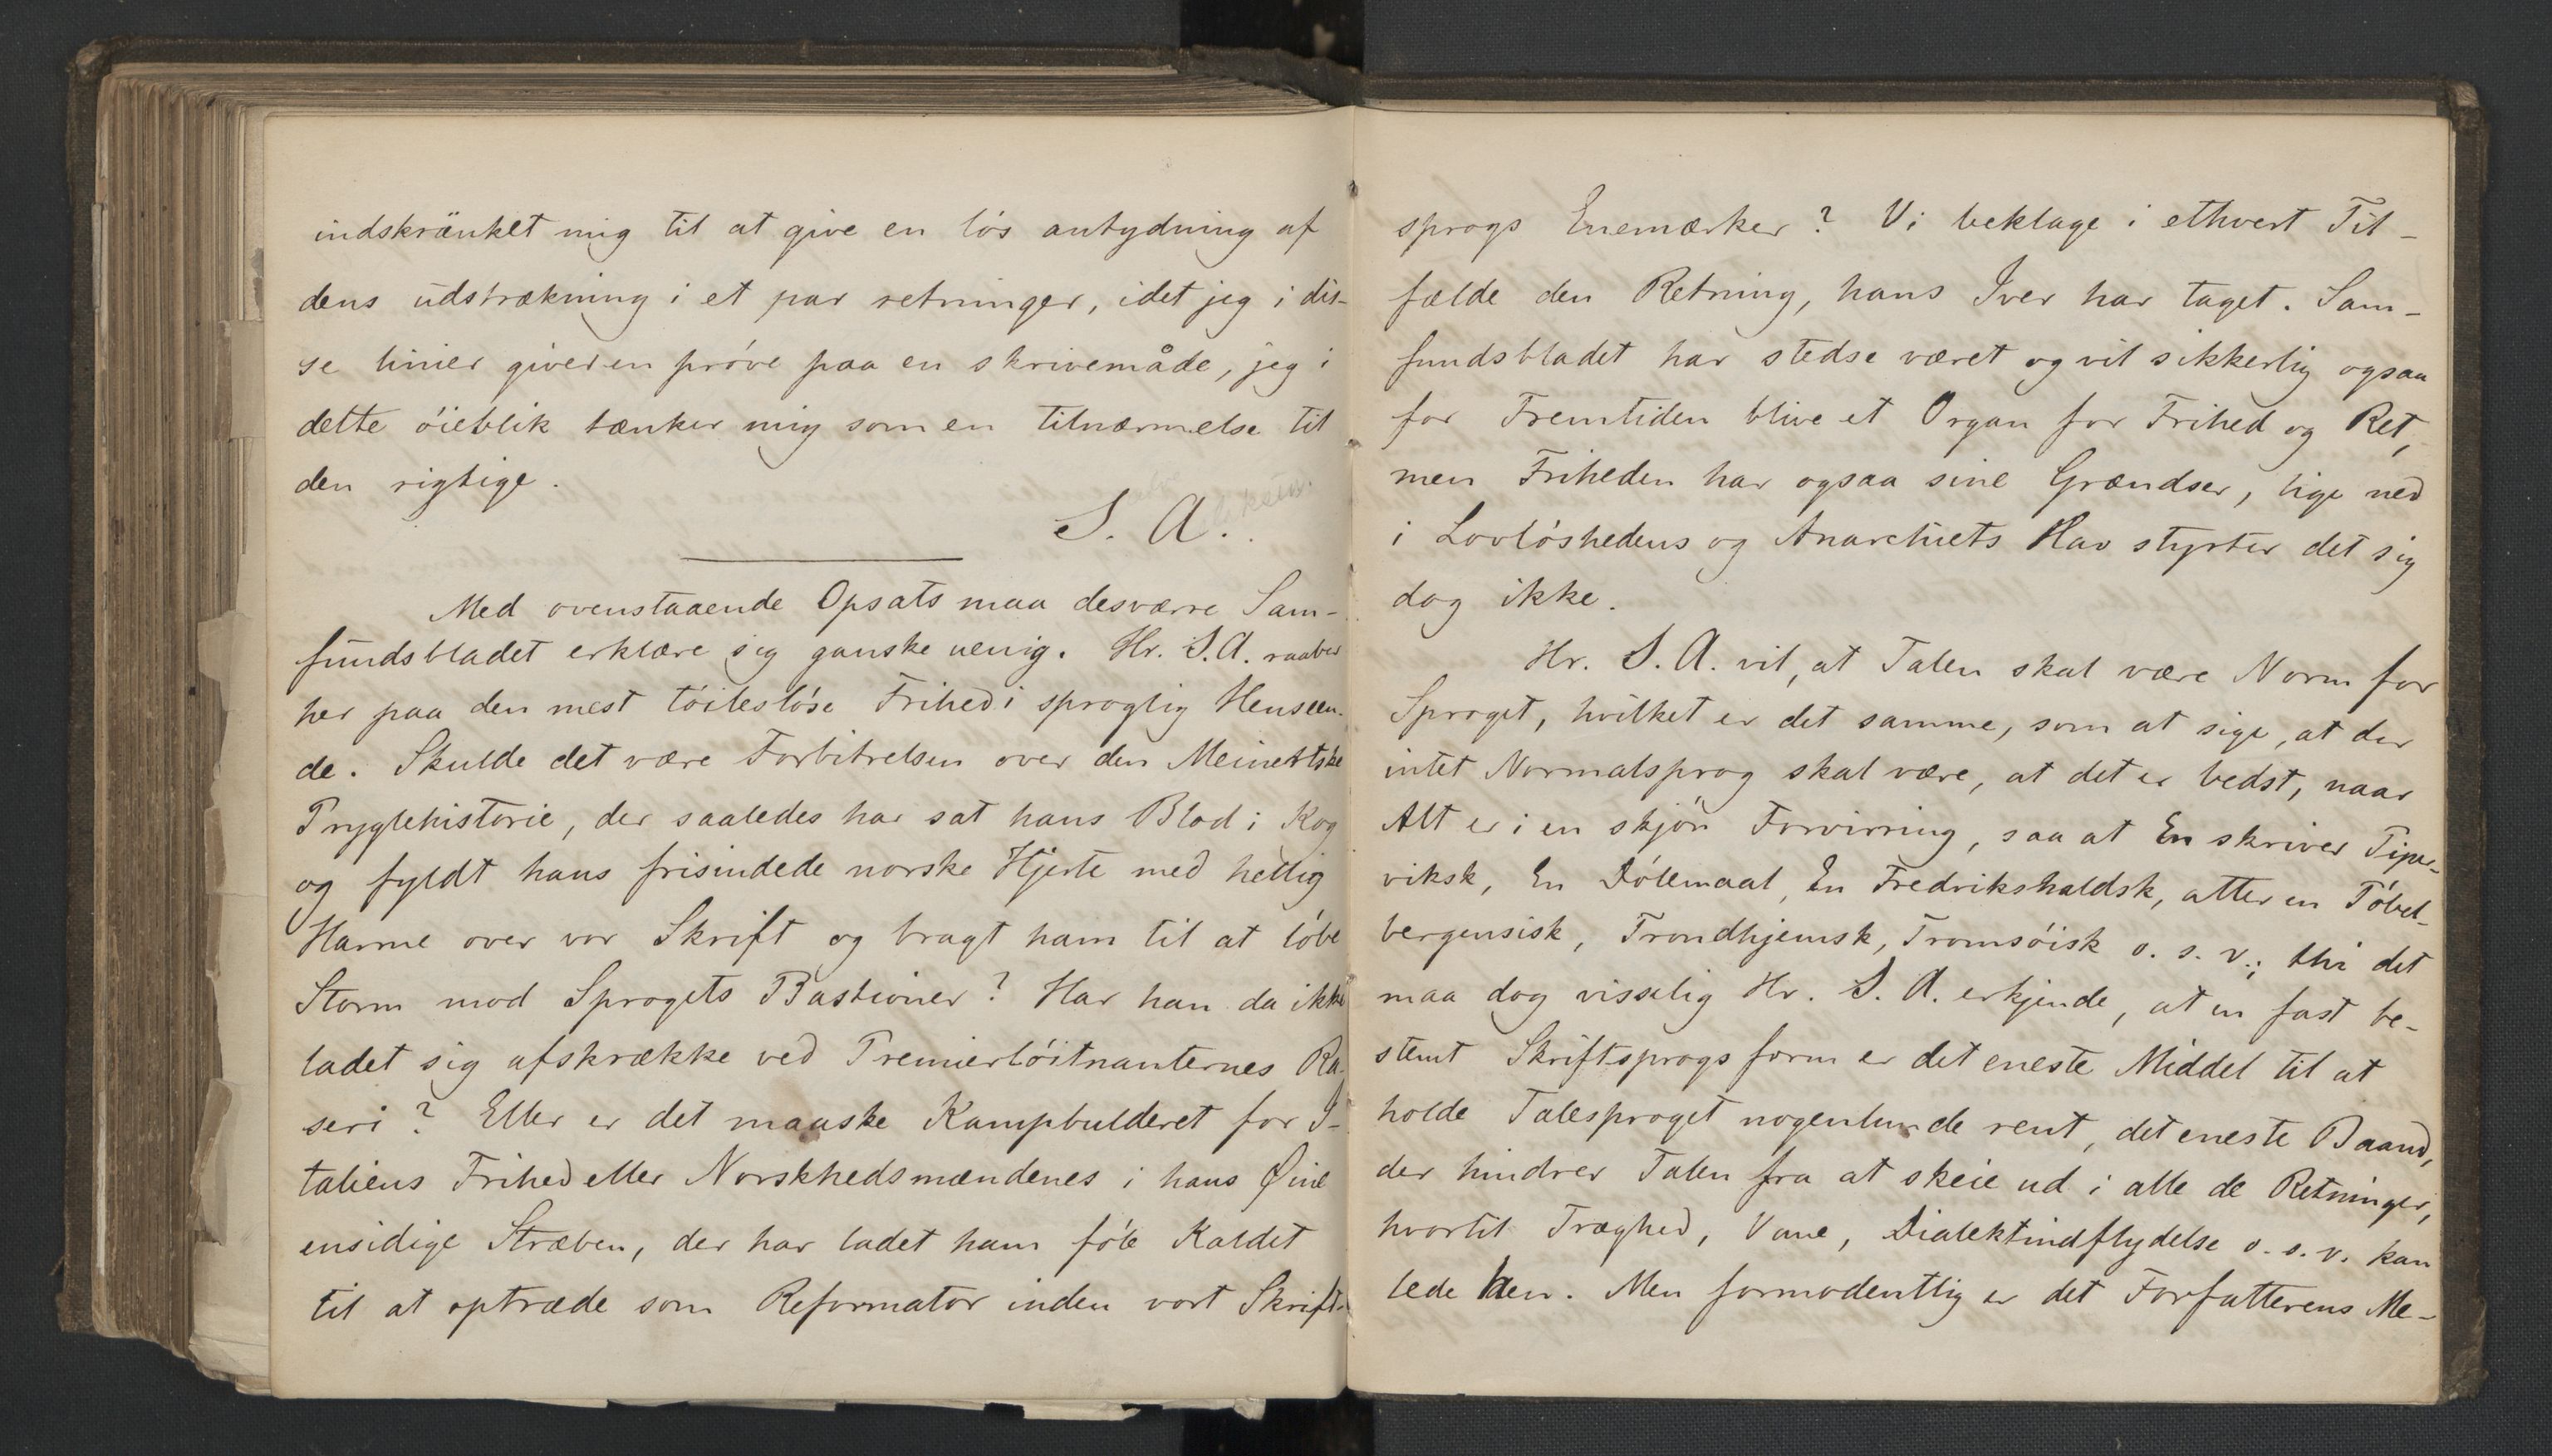 indskränket mig til at give en lös antydning af
dens udstrækning i et par retninger, idet jeg i dis-
se linier giver en pröve paa en skrivemåde, jeg i
dette öieblik tænker mig som en tilnærmelse til
den rigtige.
S. A.
Med ovenstaaende Opsats maa desværre Sam-
fundsbladet erklære sig ganske uenig. Hr. S. A. raaber
her paa den mest töilesløse Frihed i sproglig Henseen-
de. Skulde det være Forbitrelsen over den Meinertske
Pryglehistorie, der saaledes har sat hans Blod i Kog
og fyldt hans frisindede norske Hjerte med hellig
Harme over vor Skrift og bragt ham til at löbe
Storm mod Sprogets Bastioner? Har han da ikke
ladet sig afskrække ved Premierlöitnanternes Ra-
seri? Eller er det maaske Kampbulderet for I-
taliens Frihed eller Norskhedsmændenes i hans Øine
ensidige Stræben, der har ladet ham föle Kaldet
til at optræde som Reformator inden vort Skrift-
sprogs Enemærker? Vi beklage i ethvert Til-
fælde den Retning, hans Iver har taget. Sam-
fundsbladet har stedse været og vil sikkerlig ogsaa
for Fremtiden blive et Organ for Frihed og Ret,
men Friheden har ogsaa sine Grændser, lige ned
i Lovlöshedens og Anarchiets Hav styrter det sig
dog ikke.
Hr. S. A. vil, at Talen skal være Norm for
Sproget, hvilket er det samme, som at sige, at der
intet Normalsprog skal være, at det er bedst, naar
Alt er i en skjön Forvirring, saa at En skriver Piper-
viksk, En Dölemaal, En Fredrikshaldsk, atter en Töbel-
bergensisk, Trondhjemsk, Tromsöisk o. s. v.; thi det
maa dog visselig Hr. S. A. erkjende, at en fast be-
stemt Skriftsprogsform er det eneste Middel til at
holde Talesproget nogenlunde rent, det eneste Baand,
der hindrer Talen fra at skeie ud i alle de Retninger,
hvortil Træghed, Vane, Dialektindflydelse o. s. v. kan
lede hen. Men formodentlig er det Forfatterens Me-